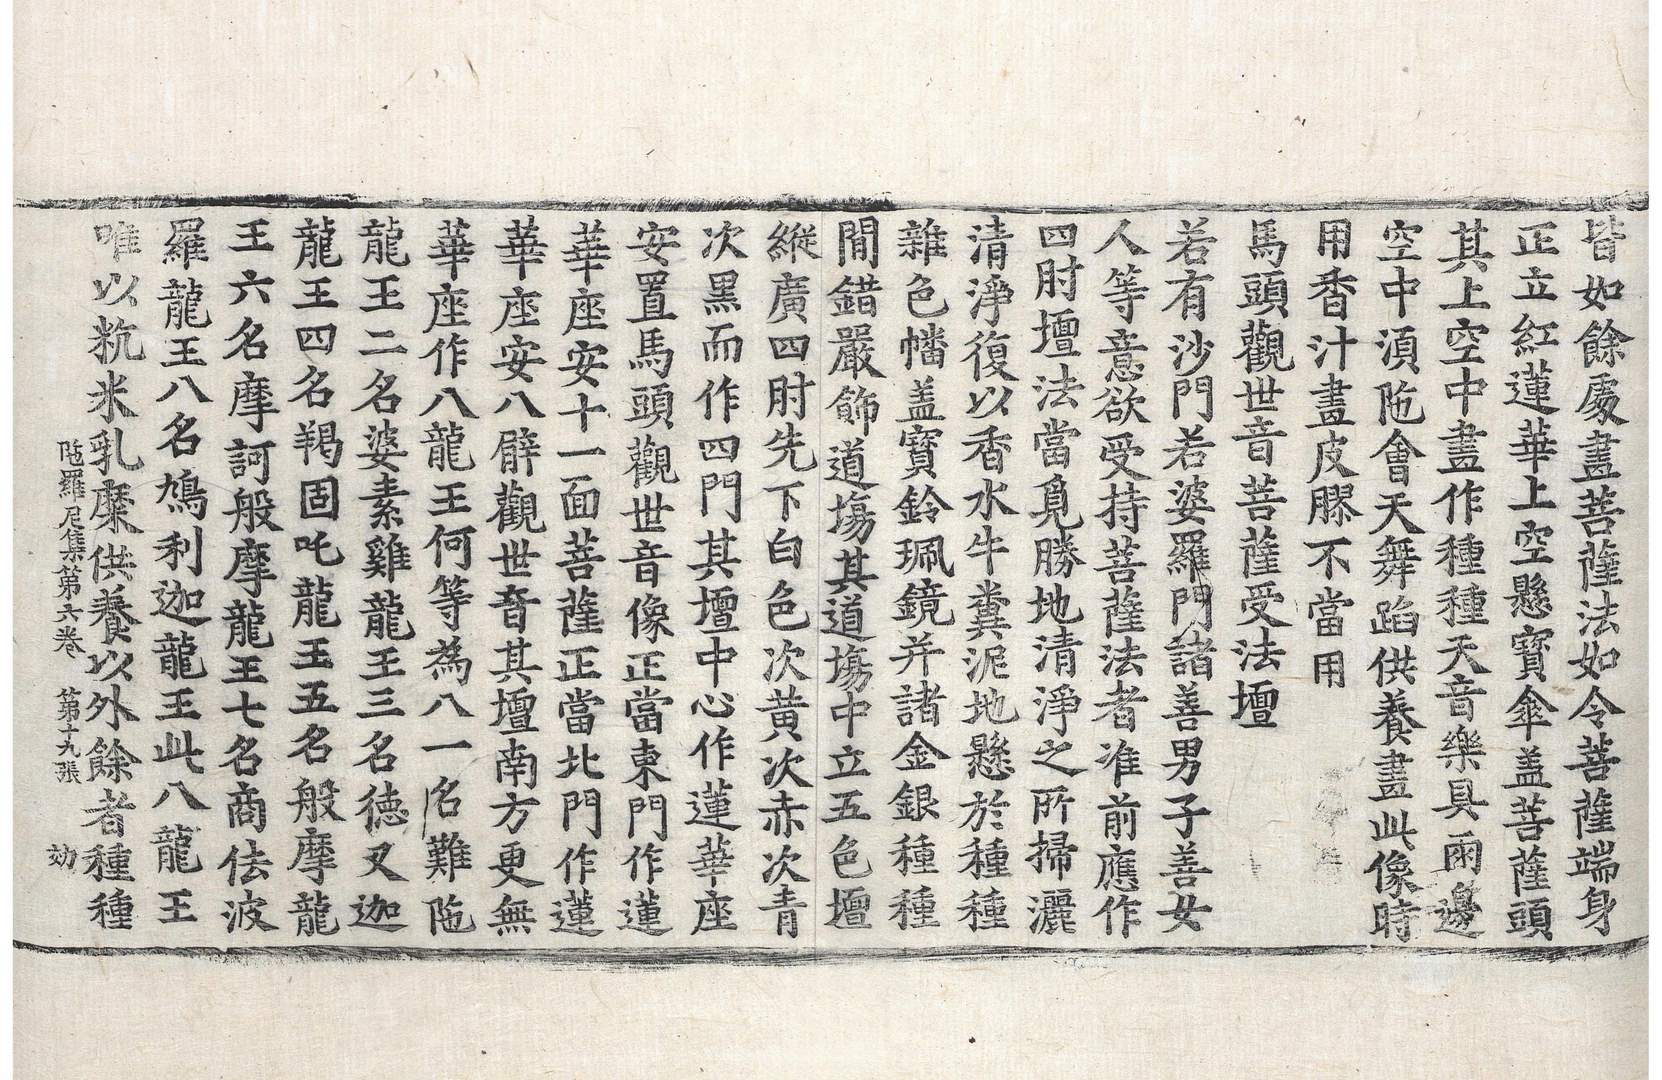 皆如餘處畫菩薩法如令菩薩端身
正立紅蓮華上空懸寶傘盖菩薩頭
其上空中畫作種種天音樂具兩邊
空中湏陁會天舞蹈供養畫此像時
用香汁畫皮膠不當用
馬頭觀世音菩薩受法壇
若有沙門若婆羅門諸善男子善女
人等意欲受持菩薩法者准前應作
四肘壇法當覓勝地清淨之所掃灑
清淨復以香水牛糞泥地懸於種種
雜色幡盖寶鈴珮鏡并諸金銀種種
閒錯嚴飾道場其道場中立五色壇
縱廣四肘先下白色次黄次赤次青
次黑而作四門其壇中心作蓮華座
安置馬頭觀世音像正當東門作蓮
華座安十一面菩薩正當北門作蓮
華座安八臂觀世音其壇南方更無
華座作八龍王何等為八一名難陁
龍王二名婆素雞龍王三名德叉迦
龍王四名羯固吒龍王五名般摩龍
王六名摩訶般摩龍王七名商佉波
羅龍王八名鳩利迦龍王此八龍王
唯以粇米乳糜供養以外餘者種種
陁羅尼集第六卷　第十九張　効